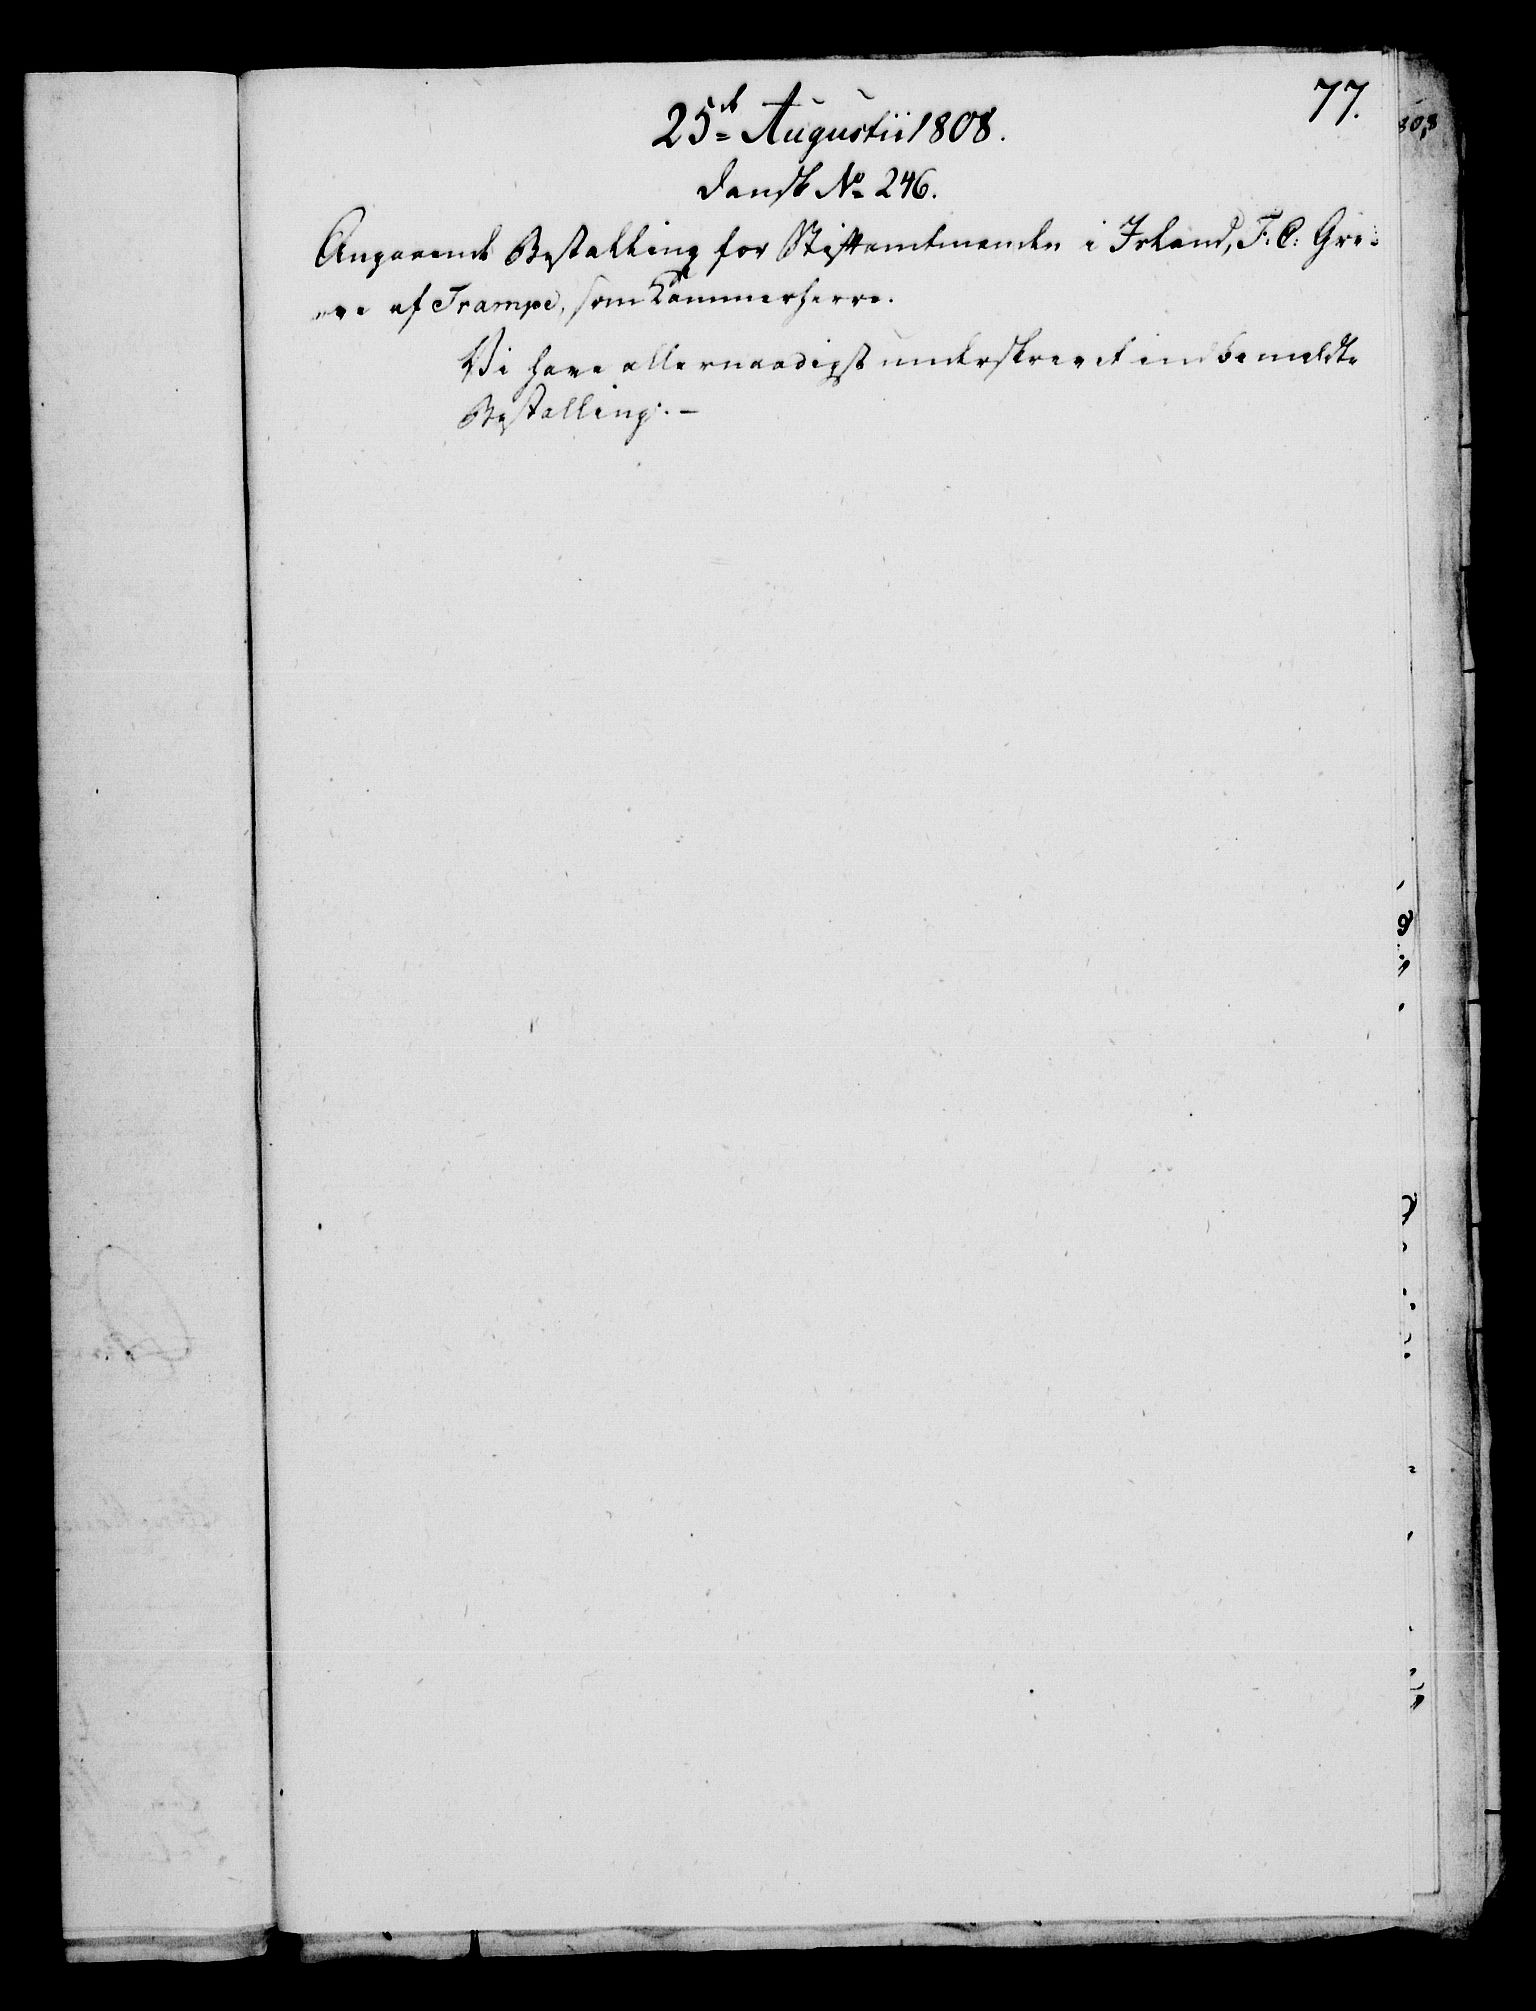 77.
25de Augustii 1808.
Dansk No 246.
Angaaende Bestalling for Stiftamtmanden i Island, F: C: Gre-
ve af Trampe, som Kammerherre.
Vi have allernaadigst underskrevet indbemeldte
Bestalling. –